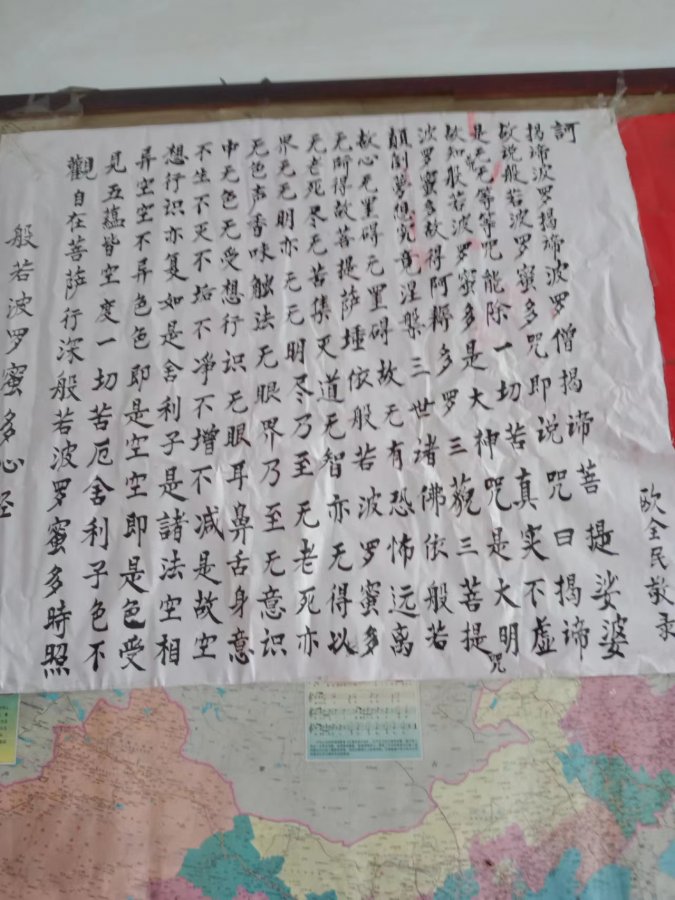 般若波罗蜜多心经
觀自在菩萨行深般若波罗蜜多時照
見五蕴皆空度一切苦厄舍利子色不
异空空不异色色即是空空即是色受
想行识亦复如是舍利子是諸法空相
不生不灭不垢不净不增不减是故空
中无色无受想行识无眼耳鼻舌身意
无色声香味触法无眼界乃至无意识
界无无明亦无无明尽乃至无老死亦
无老死尽无苦集灭道无智亦无得以
无所得故菩提萨埵依般若波罗蜜多
故心无罣碍无罣碍故无有恐怖远离
顛倒夢想究竟涅槃三世诸佛依般若
波罗蜜多故得阿耨多罗三藐三菩提
故知般若波罗蜜多是大神咒是大明咒
是无无等等咒能除一切苦真实不虚
故说般若波罗蜜多咒即说咒曰揭谛
揭谛波罗揭谛波罗僧揭谛菩提娑婆
訶
欧全民敬录